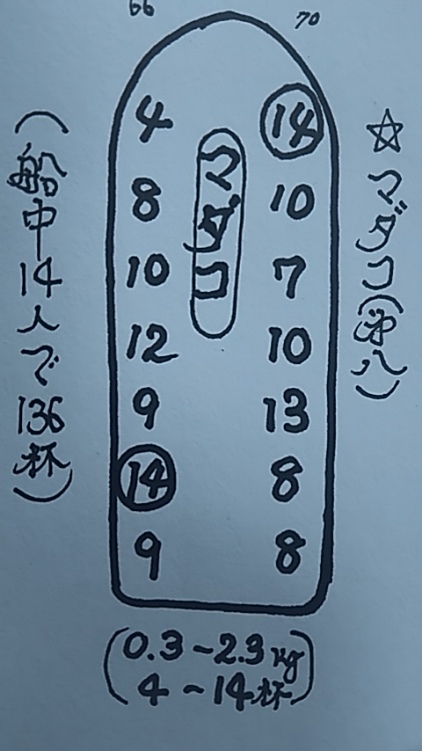 66 70
☆マダコ(㐧八)
マダコ
4 14
8 10
10 7
12 10
9 13
14 8
9 8
(船中14人で136杯)
(0.3~2.3kg
4~14杯)